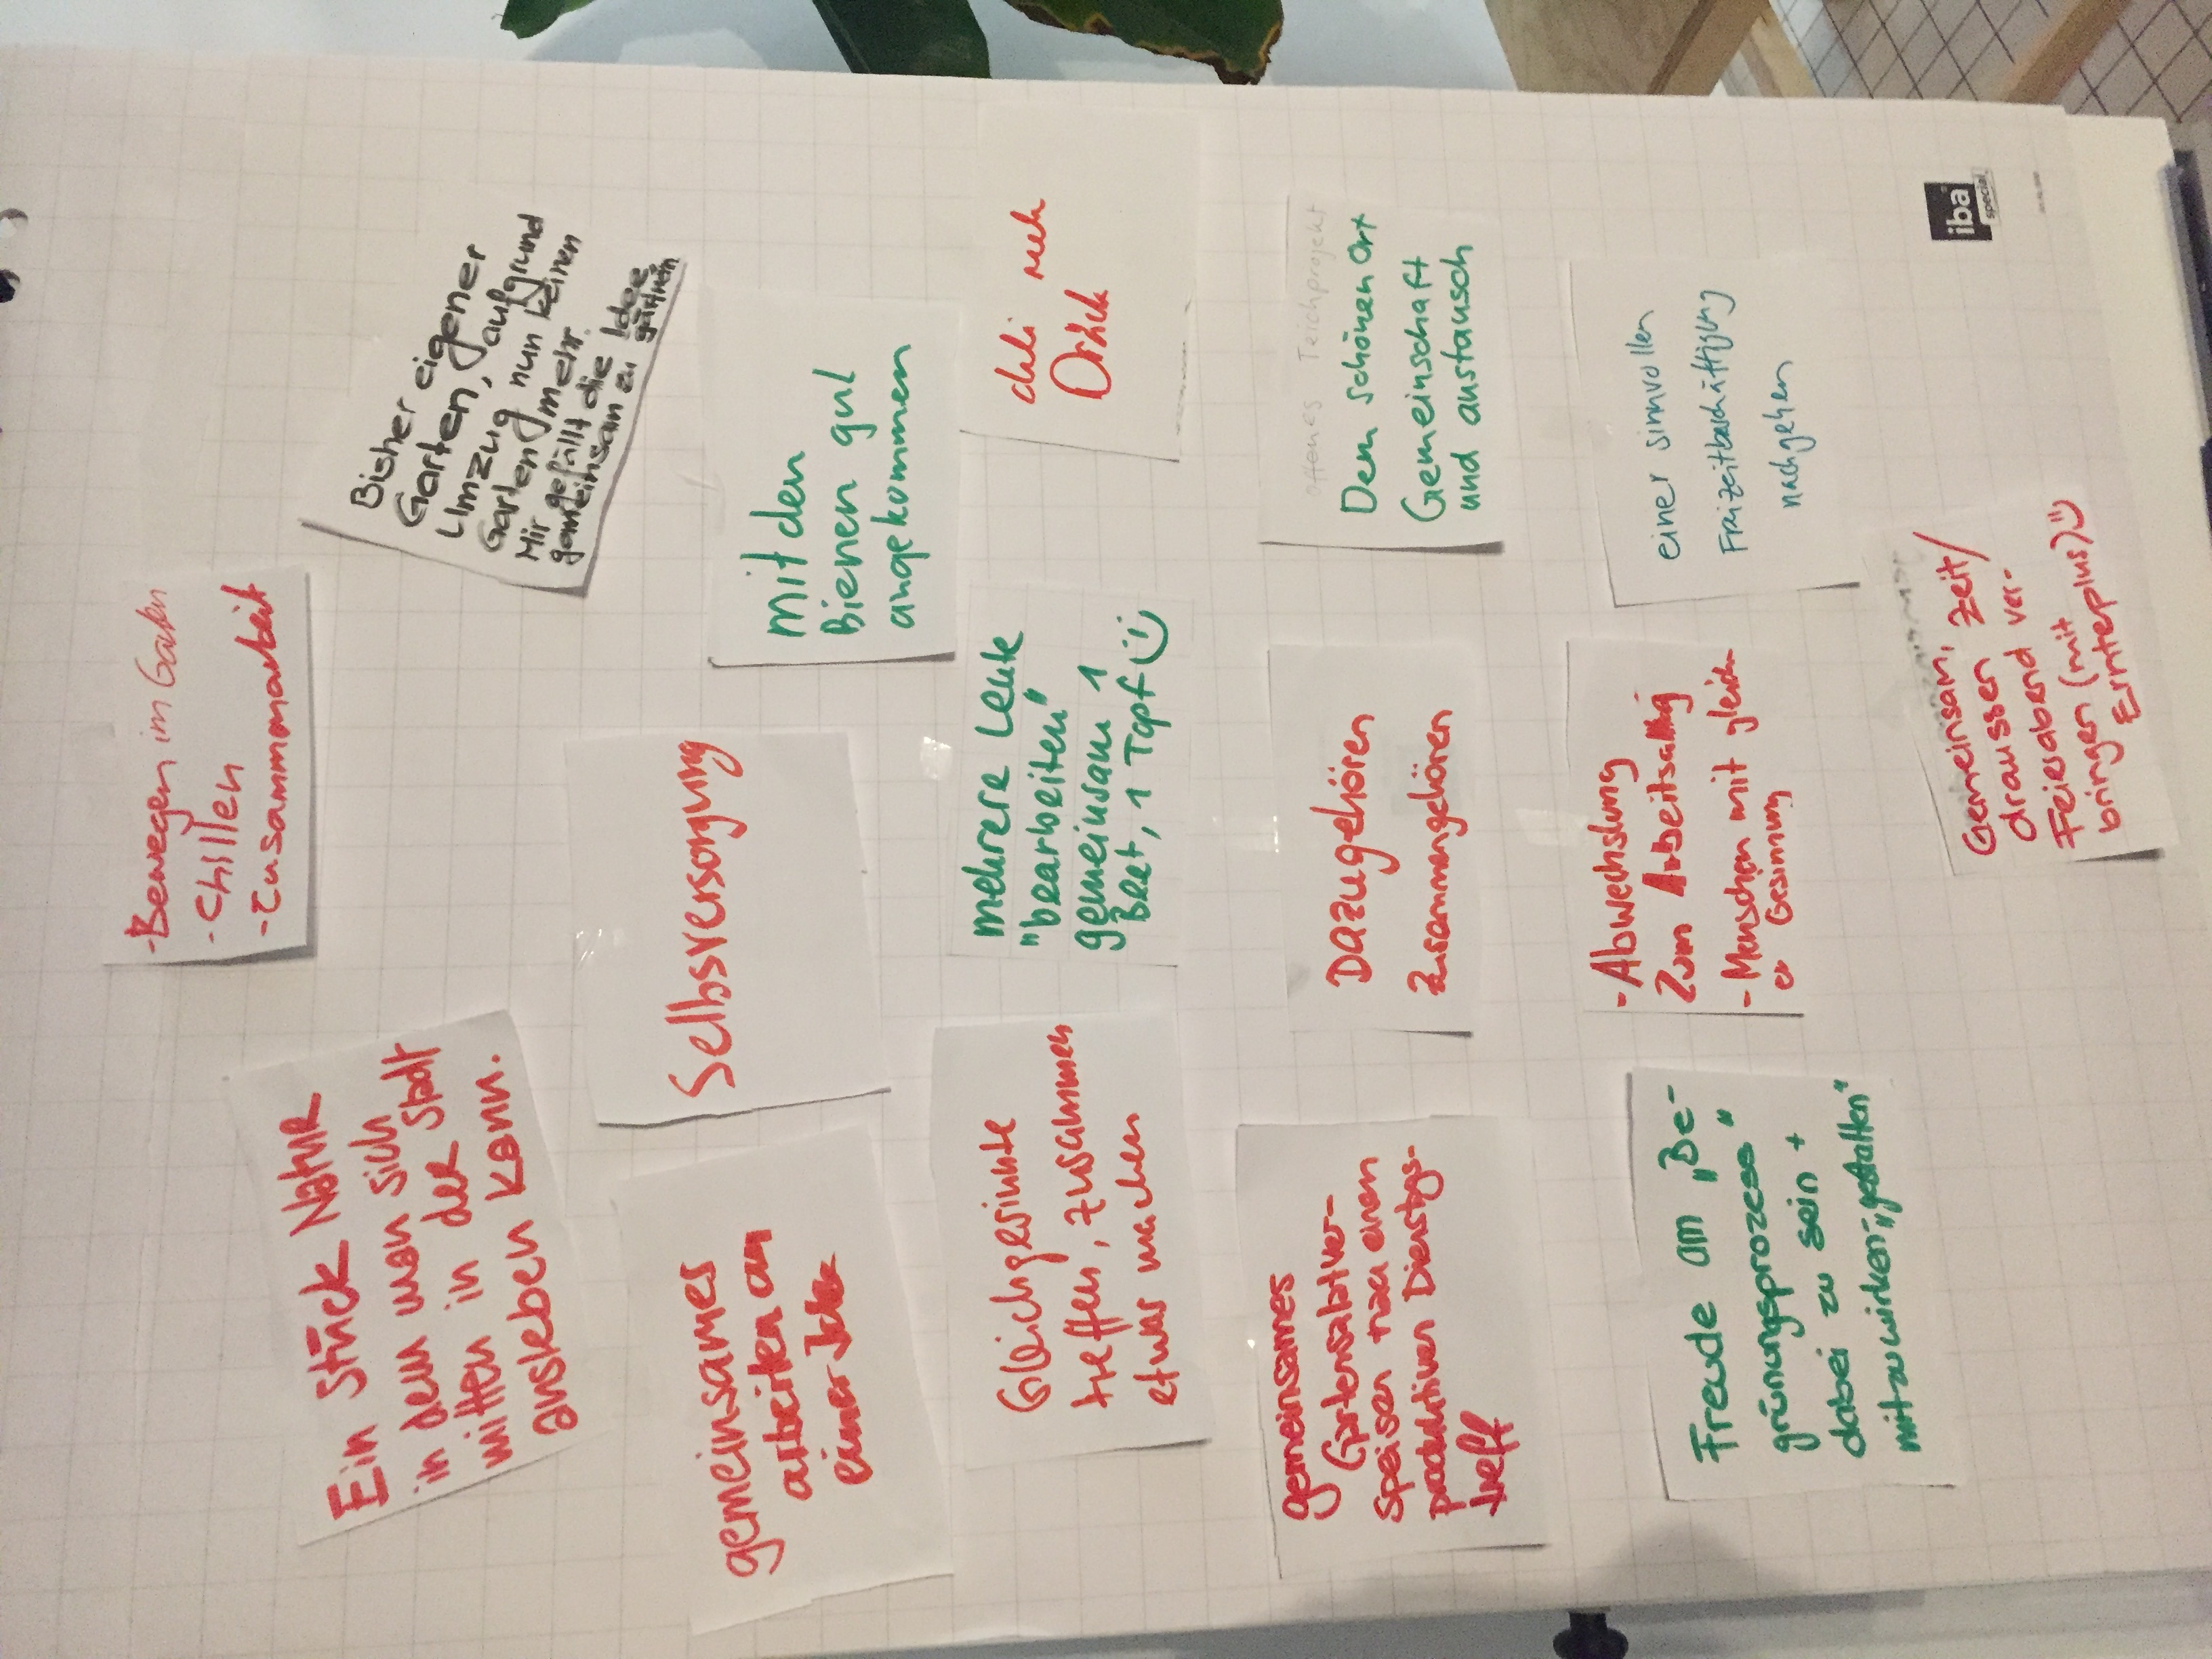 - Bewegen im Garten
- Chillen
- Zusammenarbeit
Ein Stück Natur
in dem man sich
mitten in der Stadt
ausleben kann.
Bisher eigener
Garten, aufgrund
Umzug nun keinen
Garten mehr.
Mir gefällt die Idee
gemeinsam zu gärtnern
Selbsversorgung
gemeinsames
arbeiten an
einer Idee
mit den
Bienen gut
angekommen
mehrere Leute
"bearbeiten"
gemeinsam 1
Beet, 1 Topf
Gleichgesinnte
treffen, zusammen
etwas machen
Drink
offenes Teichprojekt
Den schönen Ort
Gemeinschaft
und austausch
Dazugehören
Zusammengehören
gemeinsames
Gartensalatver-
speisen nach einem
produktiven Dienstags-
treff
einer sinnvollen
Freizeitbeschäftigung
nachgehen
- Abwechslung
Zum Arbeitsalltag
- Menschen mit gleich-
er Gesinnung
Freude am „Be-
grünungsprozess"
dabei zu sein +
mitzuwirken, „gestalten"
Gemeinsam, Zeit/
draussen ver-
Feierabend
bringen (mit
Ernteplus)
iba
special